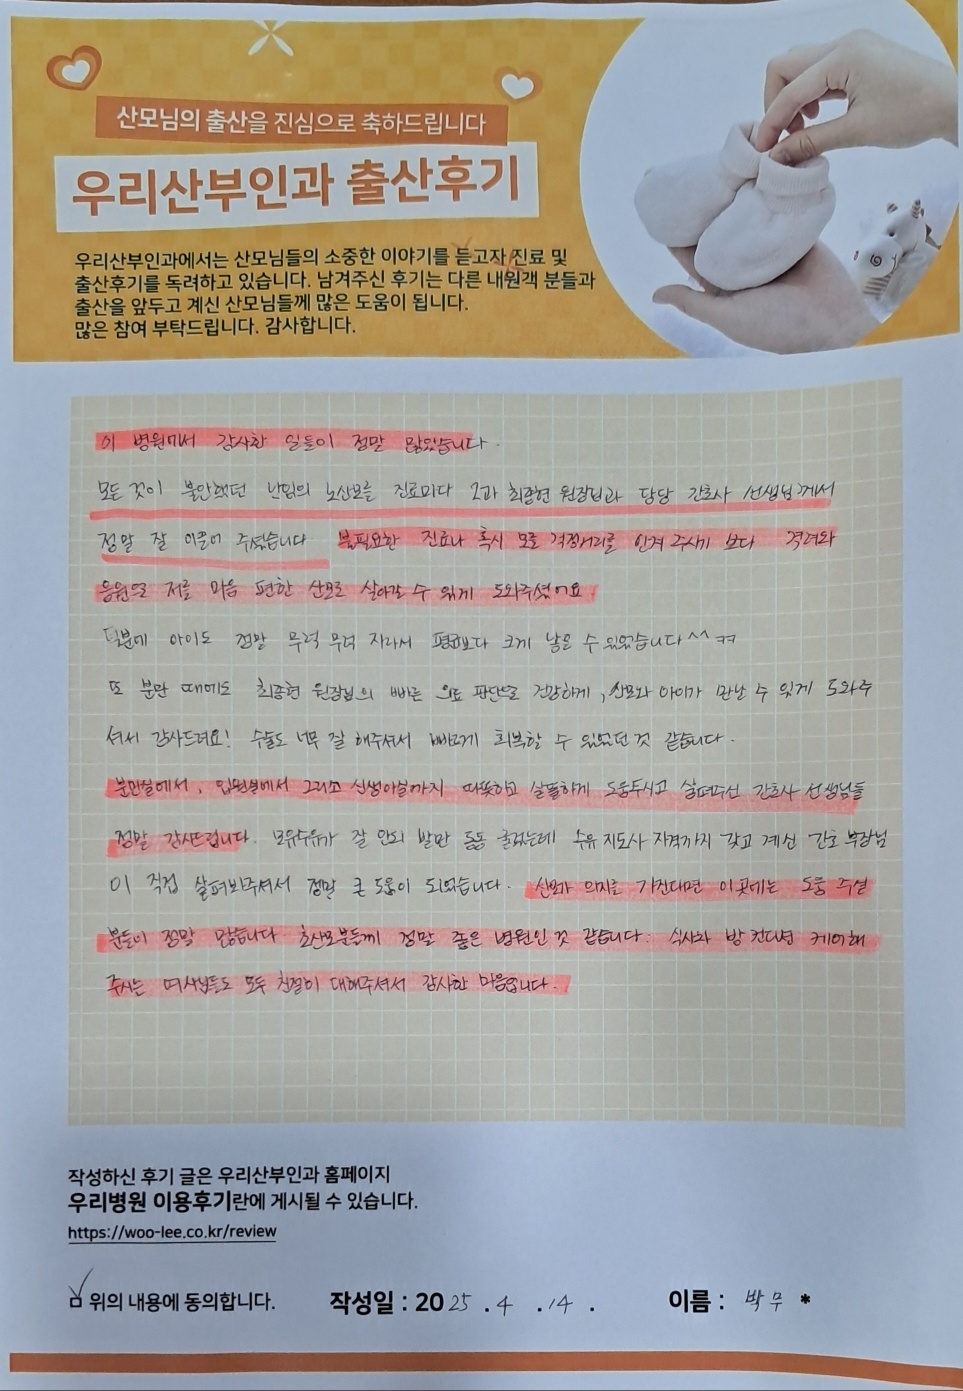 산모님의 출산을 진심으로 축하드립니다
우리산부인과 출산후기
우리산부인과에서는 산모님들의 소중한 이야기를 듣고자 진료 및
출산후기를 독려하고 있습니다. 남겨주신 후기는 다른 내원객 분들과
출산을 앞두고 계신 산모님들께 많은 도움이 됩니다.
많은 참여 부탁드립니다. 감사합니다.
이 병원에서 감사한 일들이 정말 많았습니다.
모든 것이 불안했던 난임의 노산모를 진료마다 2과 최종현 원장님과 담당 간호사 선생님께서
정말 잘 이끌어 주셨습니다. 불필요한 진료나 혹시 모를 걱정거리를 안겨 주시기 보다 격려와
응원으로 저를 마음 편한 산모로 살아갈 수 있게 도와주셨어요.
덕분에 아이도 정말 무럭 무럭 자라서 평균보다 크게 낳을 수 있었습니다^^ ㅋㅋ
또 분만 때에도 최종현 원장님의 빠른 의료 판단으로 건강하게, 산모와 아이가 만날 수 있게 도와주
셔서 감사드려요! 수술도 너무 잘 해주셔서 빠르게 회복할 수 있었던 것 같습니다.
분만실에서, 입원실에서 그리고 신생아실까지 따뜻하고 살뜰하게 도움주시고 살펴주신 간호사 선생님들
정말 감사드립니다. 모유수유가 잘 안되 발만 동동 굴렀는데 수유 지도사 자격까지 갖고 계신 간호 부장님
이 직접 살펴봐주셔서 정말 큰 도움이 되었습니다. 산모가 의지를 가진다면 이곳에는 도움 주실
분들이 정말 많습니다. 초산모분들께 정말 좋은 병원인 것 같습니다. 식사와 방 컨디션 케어해
주시는 여사님들도 모두 친절히 대해주셔서 감사한 마음입니다.
작성하신 후기 글은 우리산부인과 홈페이지
우리병원 이용후기란에 게시될 수 있습니다.
https://woo-lee.co.kr/review
위의 내용에 동의합니다. 작성일 : 2025 . 4 . 14 . 이름 : 박무 *